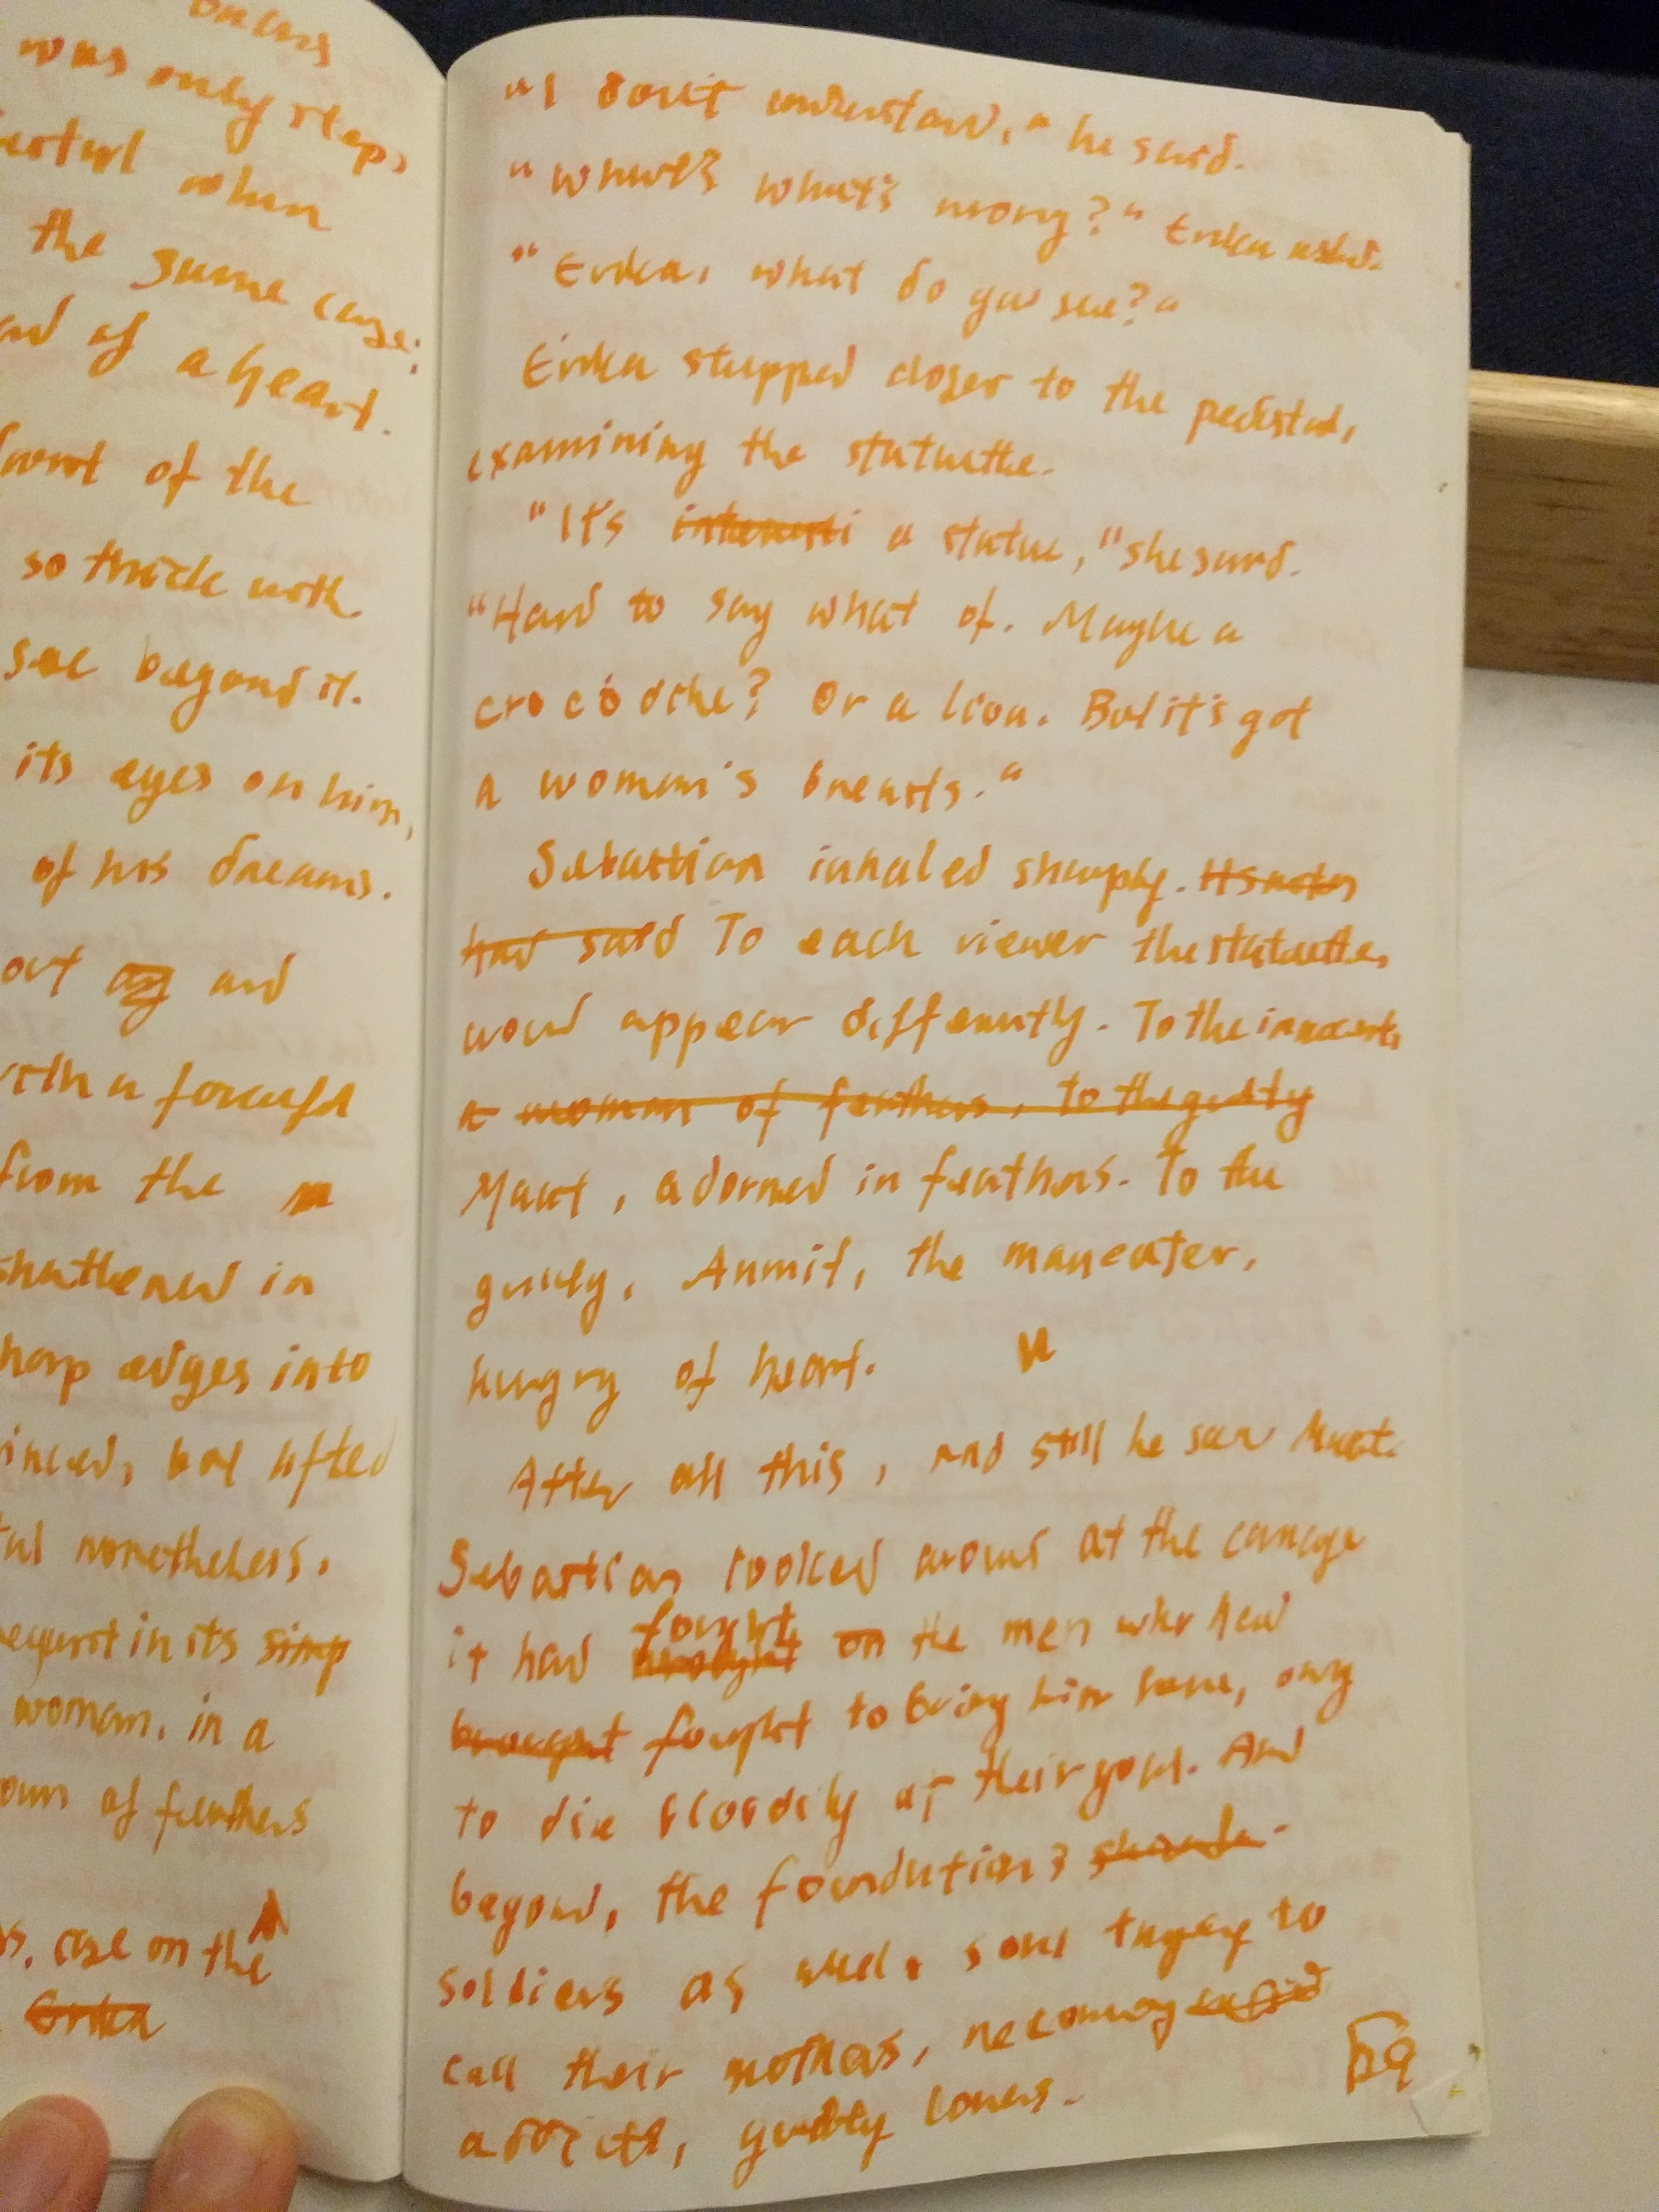 was only steps
when
the same case:
of a heart.
front of the
so thick with
see beyond it.
its eyes on him,
of his dreams.
out and
from the
shattered in
sharp edges into
lifted
nonetheless.
in its simp
woman, in a
of feathers
case on the
Erika
"I don't understand," he said.
"What's what's wrong?" Erika asked.
"Erika, what do you see?"
Erika stepped closer to the pedestal,
examining the statuette.
"It's interesti a statue," she said.
"Hard to say what of. Maybe a
crocodile? Or a lion. But it's got
a woman's breasts."
Sebastian inhaled sharply.
had said To each viewer the statuette
would appear differently. To the innocent,
a woman of feathers, to the guilty
Maat, adorned in feathers. To the
guilty, Ammit, the maneater,
hungry of heart.
After all this, and still he saw Maat.
Sebastian looked around at the carnage
it had brought fought on the men who had
brought fought to bring him here, only
to die bloodily at their goal. And
beyond, the foundation's
soldiers as well, sons trying to
call their mothers, recovering
addicts, guilty loners.
59